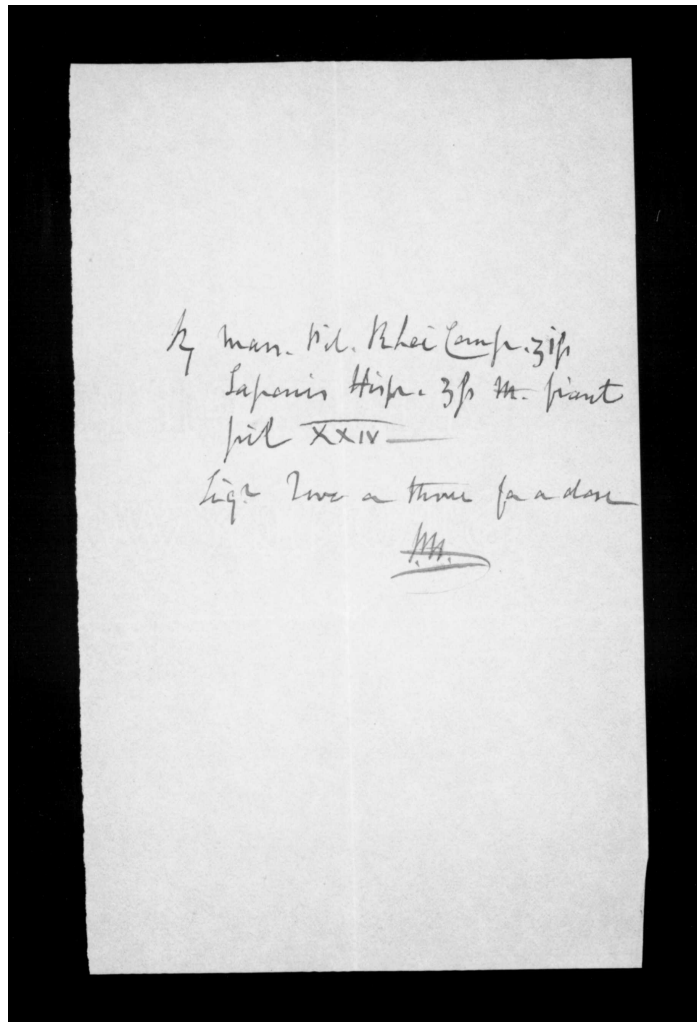 ℞ Mass. Pil. Rhei Comp. ʒiſs
Saponis Hisp. ʒſs M. fiant
pil XXIV
Sigr Two or three for a dose